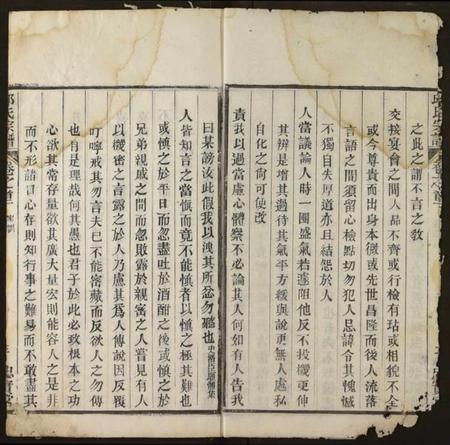 之此之謂不言之教
交接宴會之間人品不齊或行檢有玷或相貌不全
或今尊貴而出身本微或先世昌隆而後人流落
言語之間須留心檢點切勿犯人忌諱令其愧憾
不獨自失厚道亦且結怨於人
人當議論人時一團盛氣若遽阻他反不投機更伸
其辨是增其過待其氣平方緩與說更無人處私
自化之尚可使改
責我以過當虛心體察不必論其人何如有人告我
曰某謗汝此假我以洩其所忿勿聽也
人皆知言之當愼而竟不能愼者以愼之極其難也
或愼之於平日而忽盡吐於酒酣之後或愼之於
兄弟親戚之間而忽敗露於親密之人嘗見有人
以機密之言露之於人乃慮其爲人傳說因反覆
叮嚀戒其勿言夫已不能密藏而反欲人之勿傳
也有是理哉何其愚也君子於此必致根本之功
心欲其常存量欲其廣大量宏則能容人之是非
而不形諸口心存則知行事之難易而不敢盡其
氏宗譜
卷之首